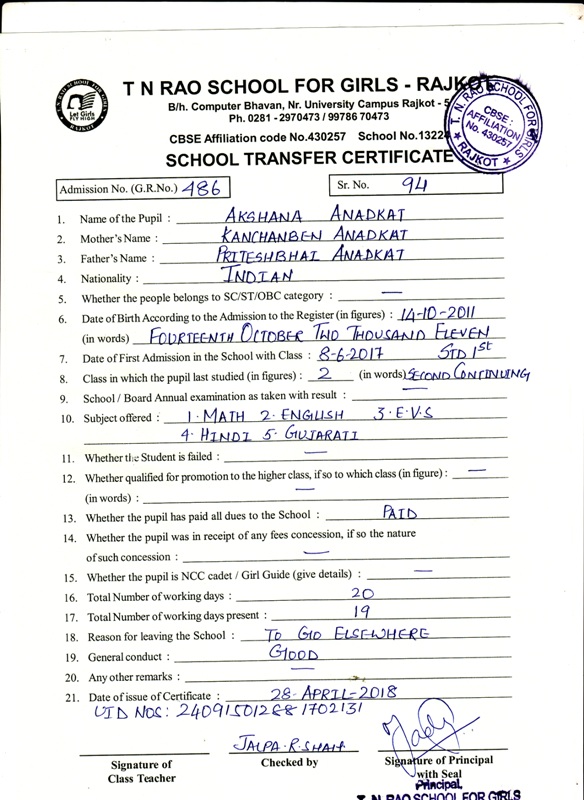 T. N. RAO SCHOOL FOR GIRLS
Let Girls
FLY HIGH
RAJKOT
T N RAO SCHOOL FOR GIRLS - RAJKOT
B/h. Computer Bhavan, Nr. University Campus Rajkot - 5
Ph. 0281 - 2970473 / 99786 70473
CBSE Affiliation code No.430257 School No.13224
T. N. RAO SCHOOL FOR GIRLS
CBSE :
AFFILIATION
No. 430257
★ RAJKOT ★
SCHOOL TRANSFER CERTIFICATE
Admission No. (G.R.No.) 486 Sr. No. 94
1. Name of the Pupil : AKSHANA ANADKAT
2. Mother's Name : KANCHANBEN ANADKAT
3. Father's Name : PRITESHBHAI ANADKAT
4. Nationality : INDIAN
5. Whether the people belongs to SC/ST/OBC category : —
6. Date of Birth According to the Admission to the Register (in figures) : 14-10-2011
(in words) FOURTEENTH OCTOBER TWO THOUSAND ELEVEN
7. Date of First Admission in the School with Class : 8-6-2017 STD 1st
8. Class in which the pupil last studied (in figures) : 2 (in words) SECOND CONTINUING
9. School / Board Annual examination as taken with result : —
10. Subject offered : 1. MATH 2. ENGLISH 3. E.V.S
4. HINDI 5. GUJARATI
11. Whether the Student is failed : —
12. Whether qualified for promotion to the higher class, if so to which class (in figure) : —
(in words) : —
13. Whether the pupil has paid all dues to the School : PAID
14. Whether the pupil was in receipt of any fees concession, if so the nature
of such concession : —
15. Whether the pupil is NCC cadet / Girl Guide (give details) : —
16. Total Number of working days : 20
17. Total Number of working days present : 19
18. Reason for leaving the School : TO GO ELSEWHERE
19. General conduct : GOOD
20. Any other remarks : —
21. Date of issue of Certificate : 28-APRIL-2018
UID NOS: 240915012681702131
JALPA.R.SHAH
Signature of
Class Teacher
Checked by
Signature of Principal
with Seal
Principal,
T. N. RAO SCHOOL FOR GIRLS